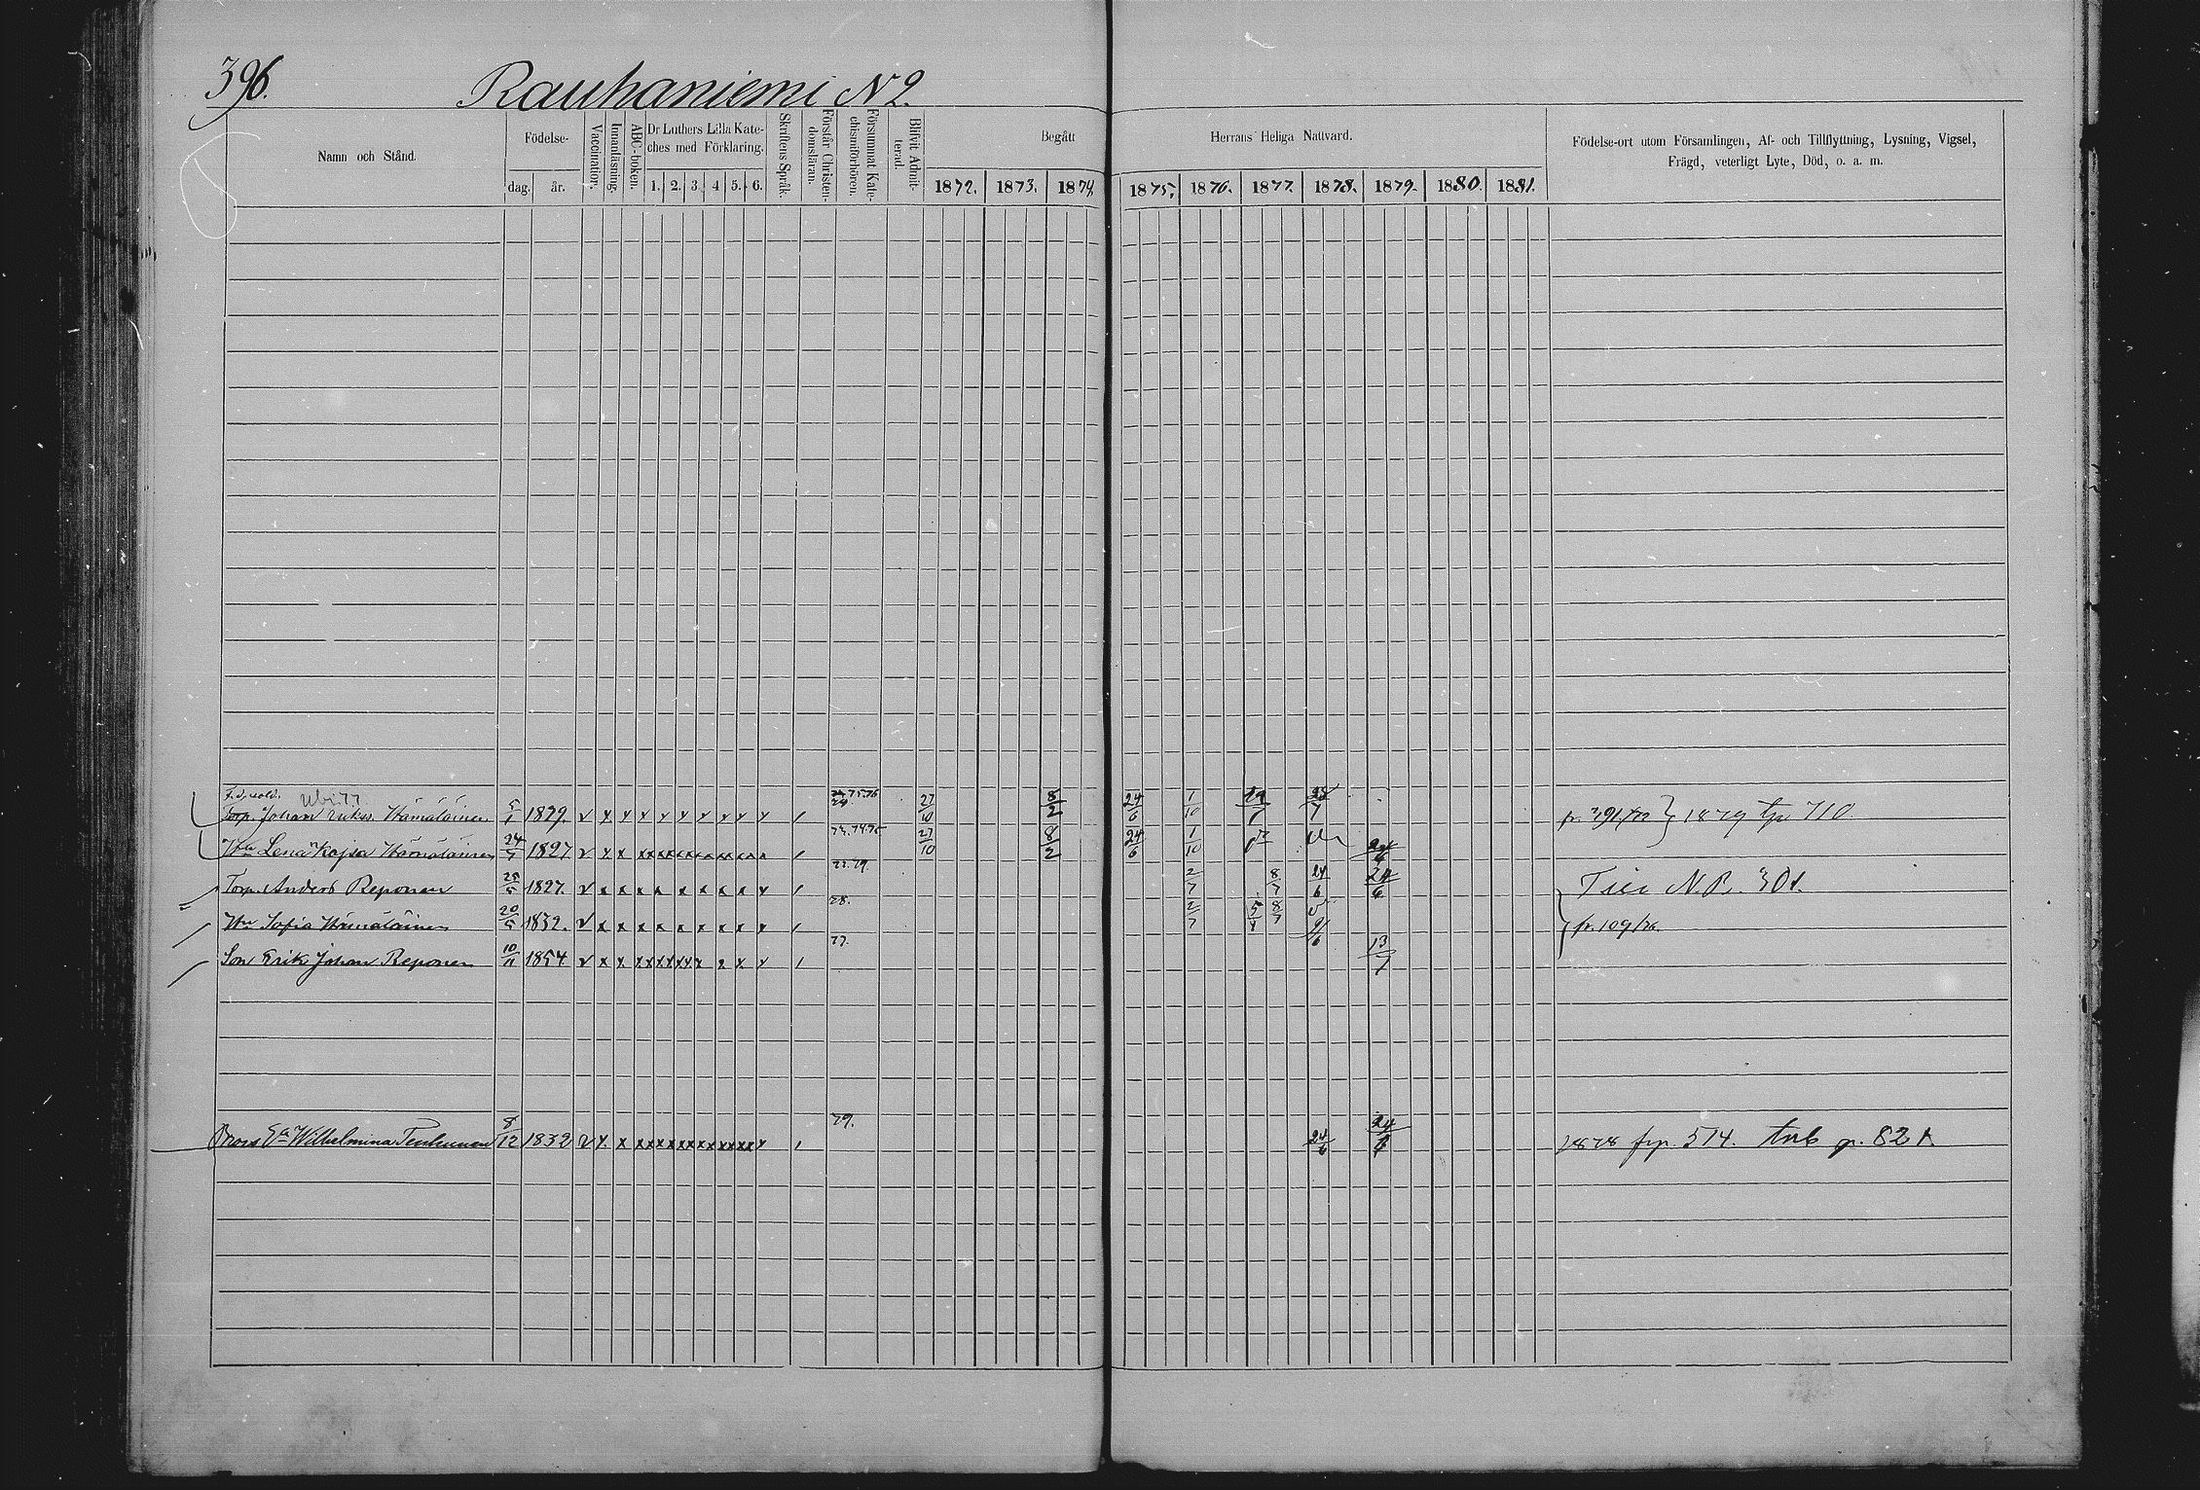 396.
Rauhaniemi N2.
Namn och Stånd.
Födelse-
dag. år.
Vaccination.
Innanläsning.
ABC-boken.
Dr Luthers Lilla Kate-
ches med Förklaring.
1. 2. 3. 4 5. 6.
Skriftens Språk.
Förstår Christen-
domsläran.
Försummat Kate-
chismiförhören.
Blifvit Admit-
terad.
Begått Herrans Heliga Nattvard.
1872. 1873. 1874. 1875. 1876. 1877. 1878. 1879. 1880. 1881.
Födelse-ort utom Församlingen, Af- och Tillflyttning, Lysning, Vigsel,
Frägd, veterligt Lyte, Död, o. a. m.
Torp. Johan Hämäläinen 1829. v x x x x x x x x x 27/10 8/2 24/6 1/10 fr. 391/72 } 1879 tp 710
Hu Lena Kajsa Hämäläinen 24/7 1827 v x x 27/10 8/2 24/6 1/10
Torp. Anders Reponen 1827. v x x x x x x x x x 2/7 8/7 24/6 24/6 N.B. 301.
Hu Sofia Hämäläinen 20/5 1832. v x x x x x x x x x 28. 2/7 8/7 fr. 109/76
Son Erik Johan Reponen 10/11 1854 v x x 77. 13/7
Wilhelmina Tenhunen 8/12 1832 v x x 79. 24/6 1878 frp. 514. p. 821.